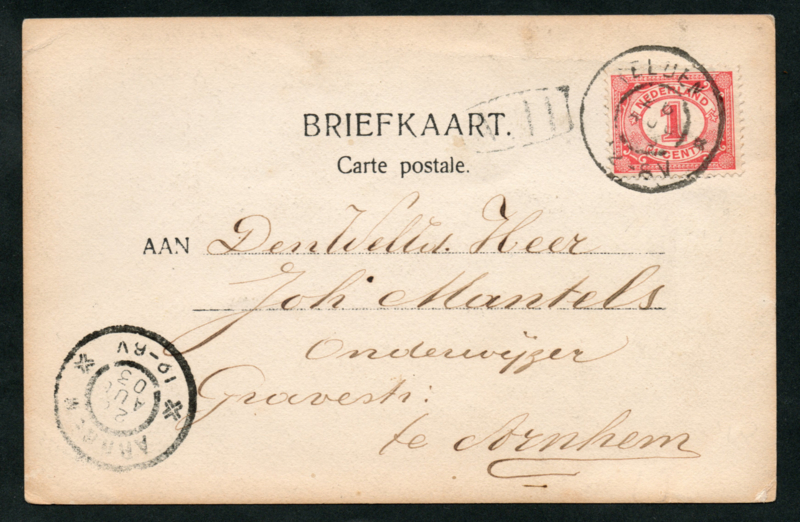 NEDERLAND
1
CENT
BRIEFKAART.
Carte postale.
AAN Den Weled. Heer
Joh Mantels
Onderwijzer
Gravestr:
te Arnhem
ARNHEM
10-8V
AUG
03